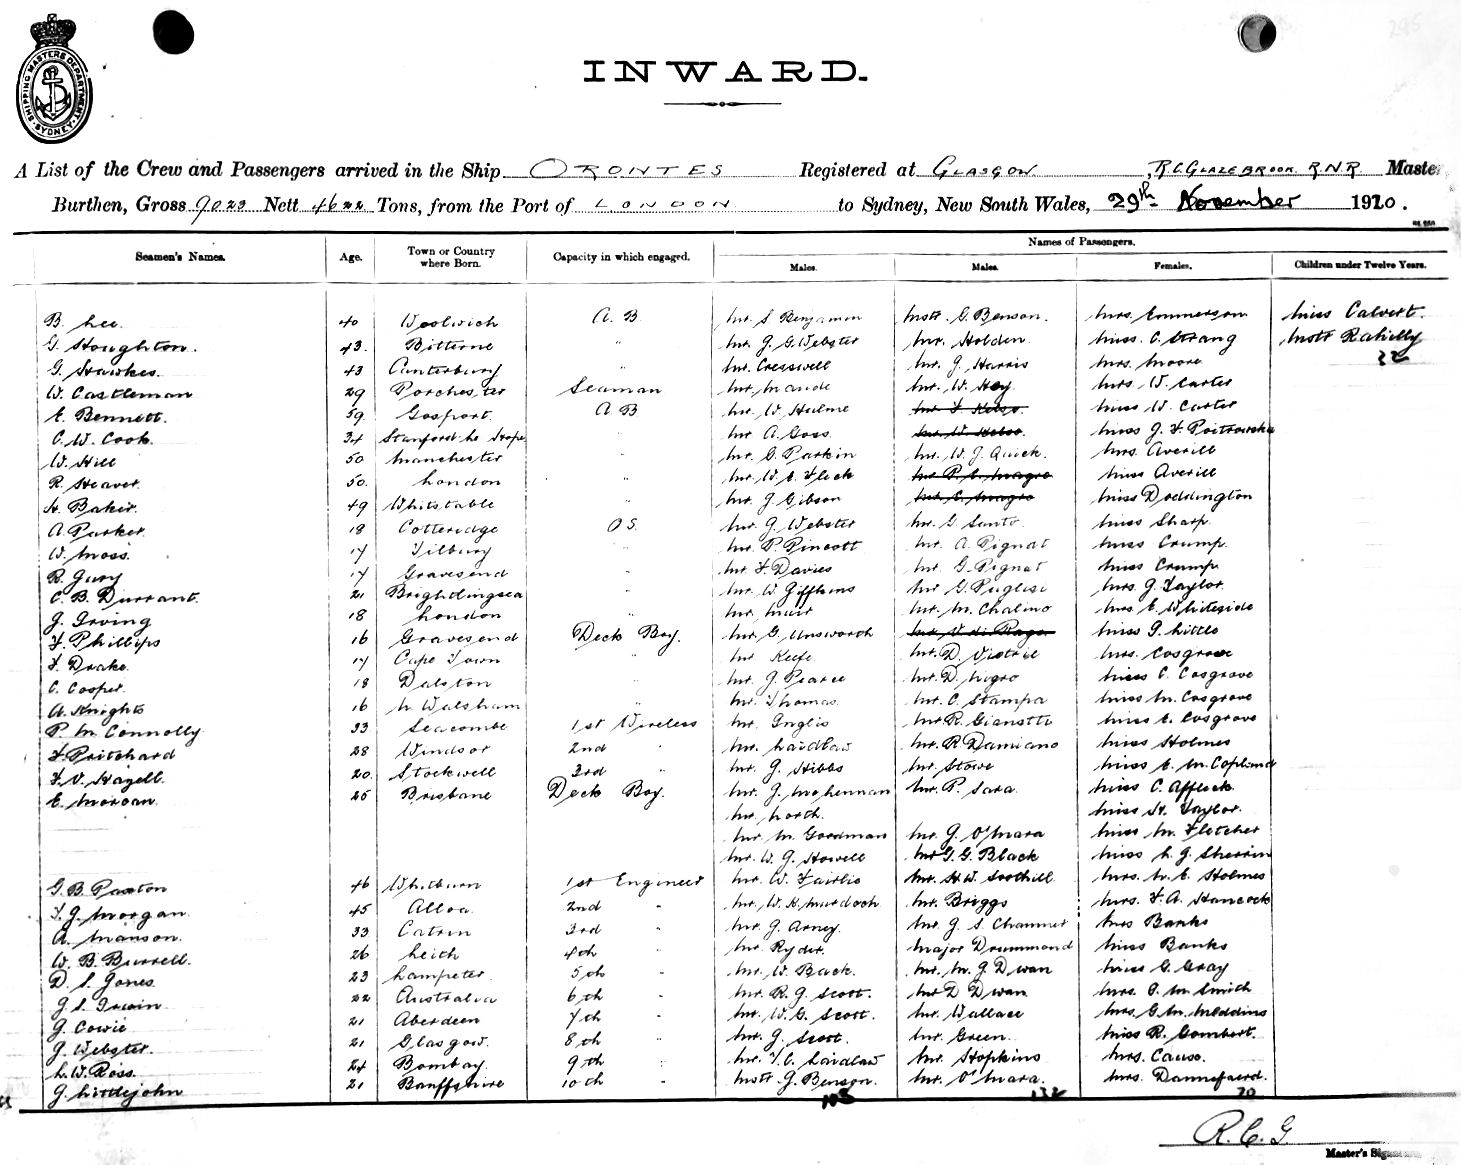 295
SHIPPING MASTERS DEPARTMENT. SYDNEY.
INWARD.
A List of the Crew and Passengers arrived in the Ship ORONTES Registered at GLASGOW, R.C. GLAZEBROOK R.N.R. Master,
Burthen, Gross 9023 Nett 4622 Tons, from the Port of LONDON to Sydney, New South Wales, 29th November 1920.
Names of Passengers.
Seamen's Names. Age. Town or Country where Born. Capacity in which engaged. Males. Males. Females. Children under Twelve Years.
B. Lee. 40 Woolwich A.B Mr. S. Benjamin Mstr. G. Benson. Mrs. Emmerson Miss Calvert.
G. Houghton. 43. Bitterne " Mr. J. G. Webster Mr. Holden. Miss. C. Strang Mstr Rahielly
G. Hawkes. 43 Canterbury " Mr. Cresswell Mr. J. Harris Mrs. Moore 22
W. Castleman 29 Porchester Seaman Mr. Maude Mr. W. Hoy. Mrs. W. Carter
E. Bennett. 59 Gosport. A B Mr. W. Hulme Mr. F. Kelso. Miss W. Carter
C. W. Cook. 34 Stanford le Hope " Mr A. Goss Mr. W. Kelso. Miss J. F. Poitrowska
W. Hill 50 Manchester " Mr. G. Parkin Mr. W. J. Quick. Mrs. Averill
R. Heaver 50. London " Mr. W. E. Fleck Mr P. C. Magro Miss Averill
H. Baker. 49 Whitstable " Mr. J. Gibson Mr. E. Magro Miss Doddington
A. Parker. 18 Cotteridge O S. Mr. J. Webster Mr. G Santo. Miss Sharp.
W. Moss. 17 Tilbury " Mr. P. Pincott Mr. A. Pignat Miss Crump.
B. Jury 17 Gravesend " Mr F. Davies Mr. G. Pignat Miss Crump.
C. B. Durrant. 21 Brightlingsea " Mr. W. Giffkins Mr G. Puglisi Mrs. J. Taylor.
J. Irving 18 London " Mr. Muir Mr. M. Chalino Mrs E. Whiteside
F. Phillips 16 Gravesend Deck Boy. Mr. G. Unsworth Mr. V. di Rago. Miss. P. Little
F. Drake. 17 Cape Town " Mr Keefe. Mr. D. Vistrie Mrs. Cosgrove
C. Cooper. 18 Dalston " Mr. J. Pearce Mr. D. Nigro Miss C. Cosgrove
A. Knights 16 N. Walsham " Mr. Thomas. Mr. C. Stampa Miss M. Cosgrove
P. M. Connolly 33 Seacombe 1st Wireless Mr. Inglis Mr R. Gianotti Miss E. Cosgrove
F. Pritchard 28 Windsor 2nd " Mr. Laidlaw Mr. R Damiano Miss Holmes
F. V. Hazell. 20. Stockwell 3rd " Mr. J. Hibbs Mr. Stowe Miss E. M. Copland
E. Morgan. 25 Brisbane Deck Boy. Mr. J. McLennan Mr. P. Sara. Miss C. Affleck
Mr. North. Miss H. Taylor.
Mr. M. Goodman Mr. J. O'Mara Miss M. Fletcher
Mr. W. J. Howell Mr G. G. Black Miss L. J. Sherrin
G. B. Paxton 46 Whitburn 1st Engineer Mr. W. Fairlie Mr. H. W. Soothill. Mrs. M. E. Holmes
T. J. Morgan. 45 Alloa. 2nd " Mr. W. K. Murdoch Mr. Briggs Mrs. F. A. Hancock
A. Manson. 33 Catrin 3rd " Mr. J. Arney. Mr. J. S. Channer Mrs Banks
W. B. Burrell. 26 Leith 4th " Mr. Ryder. Major Drummond Miss Banks
D. S. Jones. 23 Lampeter. 5th " Mr. W. Back. Mr. M. J. Dwan Miss G. Gray
J. S. Irwin. 22 Australia 6th " Mr. R. J. Scott. Mr D Dwan Mrs. P. M. Smith
J. Cowie 21 Aberdeen 7th " Mr. W. G. Scott. Mr. Wallace Mrs. G. M. Meddins
J. Webster. 21 Glasgow. 8th " Mr. J. Scott. Mr. Green. Miss R. Gombert.
L. W. Ross. 24 Bombay. 9th " Mr. T. C. Laidlaw Mr. Hopkins Mrs. Causo.
J. Littlejohn 21 Banffshire 10th " Mstr. J. Benson. Mr. O'Mara. Mrs. Dannefaerd.
103 132 70
R. C. G.
Master's Signature